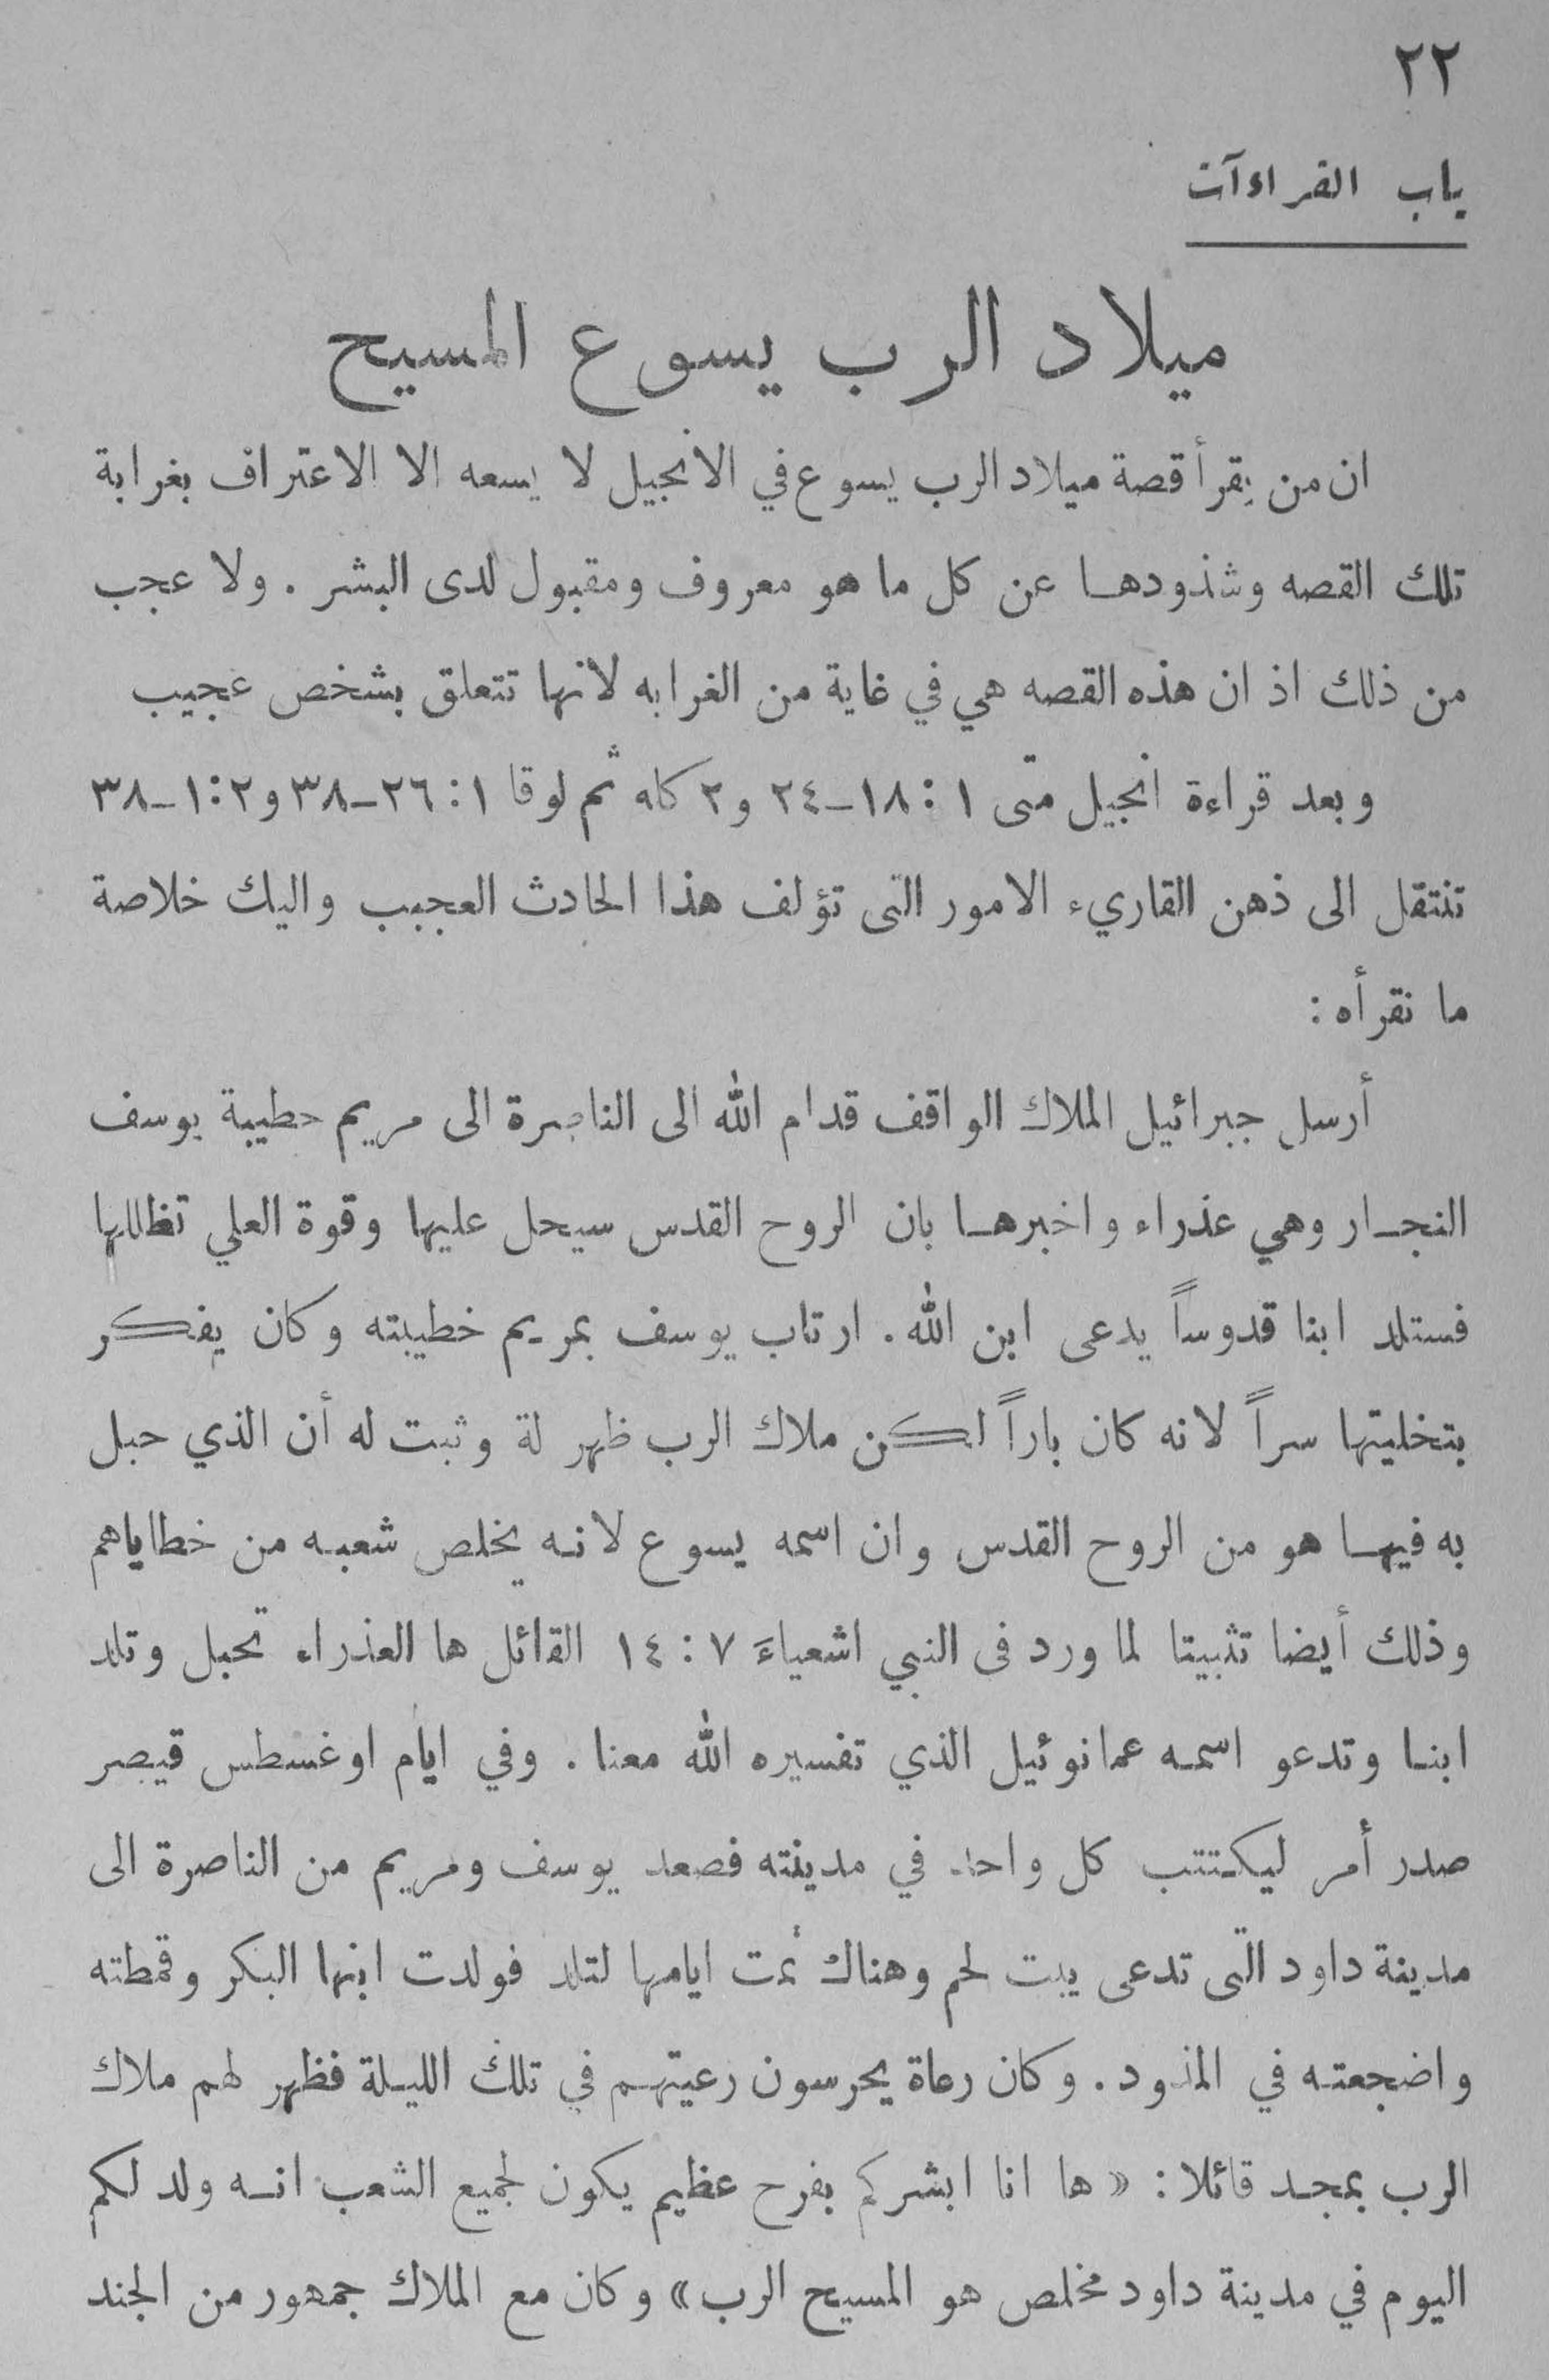 ٢٢
باب القراءآت
ميلاد الرب يسوع المسيح
ان من يقرأ قصة ميلاد الرب يسوع في الانجيل لا يسعه الا الاعتراف بغرابة
تلك القصه وشذودها عن كل ما هو معروف ومقبول لدى البشر . ولا عجب
من ذلك اذ ان هذه القصه هي في غاية من الغرابه لانها تتعلق بشخص عجيب
وبعد قراءة انجيل متى ١ : ١٨-٢٤ و٢ كله ثم لوقا ١ : ٢٦-٣٨ و٢ : ١-٣٨
تنتقل الى ذهن القاريء الامور التى تؤلف هذا الحادث العجيب واليك خلاصة
ما نقرأه :
أرسل جبرائيل الملاك الواقف قدام الله الى الناصرة الى مريم خطيبة يوسف
النجار وهي عذراء واخبرها بان الروح القدس سيحل عليها وقوة العلي تظللها
فستلد ابنا قدوساً يدعى ابن الله . ارتاب يوسف بمريم خطيبته وكان يفكر
بتخليتها سراً لانه كان باراً لكن ملاك الرب ظهر لة وثبت له أن الذي حبل
به فيها هو من الروح القدس وان اسمه يسوع لانه يخلص شعبه من خطاياهم
وذلك أيضا تثبيتا لما ورد فى النبي اشعياءَ ٧ : ١٤ القائل ها العذراء تحبل وتلد
ابنا وتدعو اسمه عمانوئيل الذي تفسيره الله معنا . وفي ايام اوغسطس قيصر
صدر أمر ليكتتب كل واحد في مدينته فصعد يوسف ومريم من الناصرة الى
مدينة داود التى تدعى بيت لحم وهناك تمت ايامها لتلد فولدت ابنها البكر وقمطته
واضجعته في المذود . وكان رعاة يحرسون رعيتهم في تلك الليلة فظهر لهم ملاك
الرب بمجد قائلا : « ها انا ابشركم بفرح عظيم يكون لجميع الشعب انه ولد لكم
اليوم في مدينة داود مخلص هو المسيح الرب » وكان مع الملاك جمهور من الجند